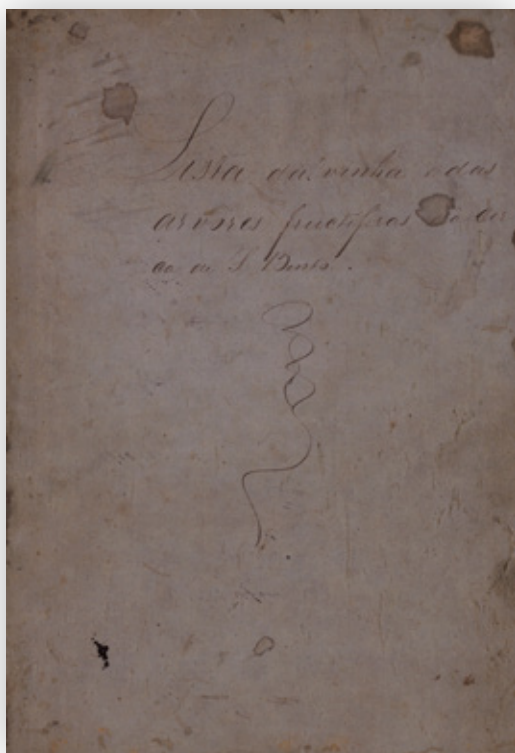 Lista da vinha e das
arvores fructiferas da cer
ca de S. Bento.